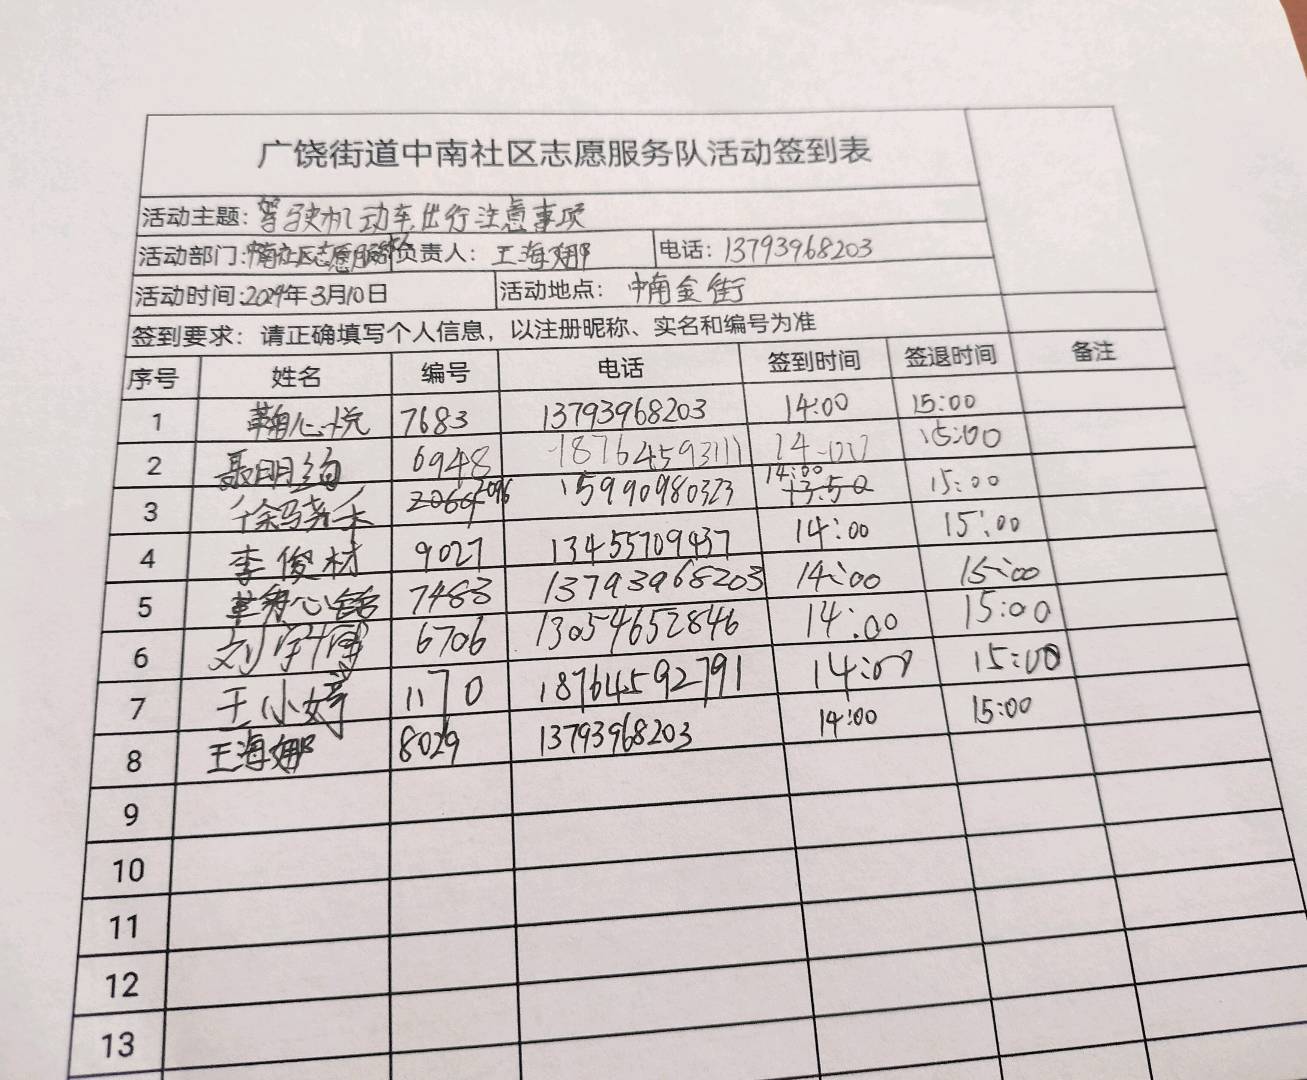 广饶街道中南社区志愿服务队活动签到表
活动主题: 驾驶机动车出行注意事项
活动部门: 中南社区志愿服务队 负责人: 王海娜 电话: 13793968203
活动时间: 2024年3月10日 活动地点: 中南金街
签到要求: 请正确填写个人信息, 以注册昵称、实名和编号为准
序号 姓名 编号 电话 签到时间 签退时间 备注
1 鞠心悦 7683 13793968203 14:00 15:00
2 6948 18764593111 15:00
3 2096 15990980323 14:00 15:00
4 李俊材 9027 13455709437 14:00 15:00
5 7483 13793968203 14:00 15:00
6 刘宇博 6706 13054652846 14:00 15:00
7 王小婷 1170 18764592791 14:00 15:00
8 王海娜 8029 13793968203 14:00 15:00
9
10
11
12
13